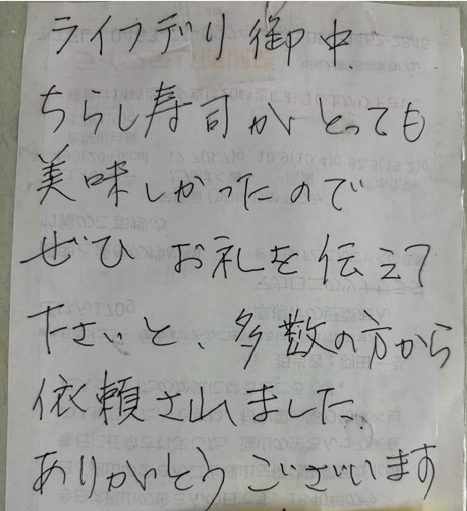 ライフデリ御中
ちらし寿司がとっても
美味しかったので
ぜひ お礼を伝えて
下さいと、多数の方から
依頼されました。
ありがとうございます